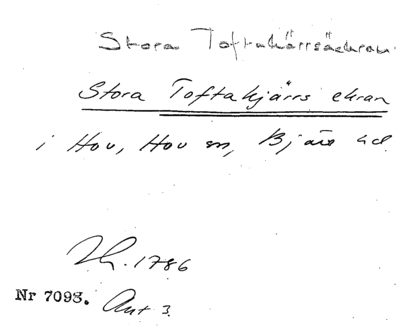 Stora Toftakärrsåekran
Stora Toftakjärrs ekran
i Hov, Hov sn, Bjäre hd.
1786
Nr 7093. Akt 3.